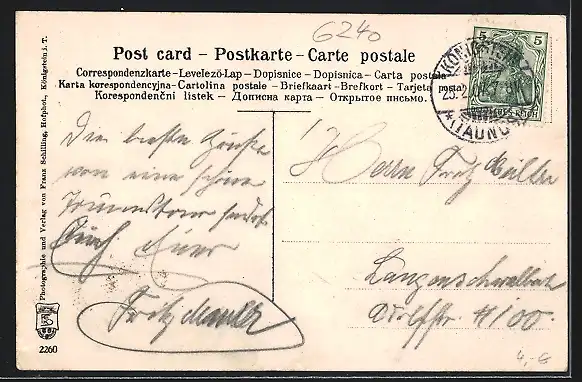 6240
Post card – Postkarte – Carte postale
Correspondenzkarte – Levelező-Lap – Dopisnice – Dopisnica – Carta postale
Karta korespondencyjna – Cartolina postale – Briefkaart – Brefkort – Tarjeta postal
Korespondenční listek – Дописна карта – Открытое письмо.
5 5
(TAUNUS)
DEUTSCHES REICH
Die besten Grüße
von einer schönen
sendet
Euch Euer
Fritz
Herrn Fritz Müller
Langenschwalbach
Adolfstr. 100.
4,-G
Photographie und Verlag von Franz Schilling, Hofphot., Königstein i. T.
2260